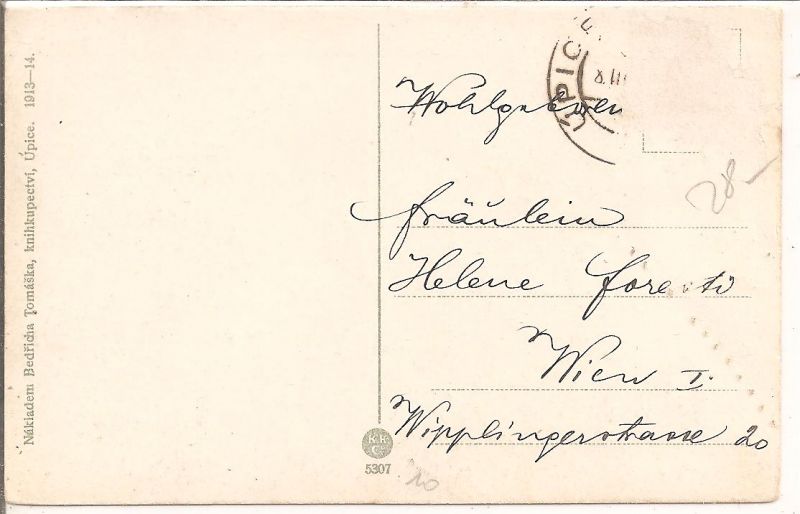 Nákladem Bedřicha Tomáška, knihkupectví, Úpice. 1913—14.
ÚPIC
8.III
Wohlgeboren
Fräulein
Helene
Wien I.
Wipplingerstrasse 20
28-
K.K.
C°
5307
20